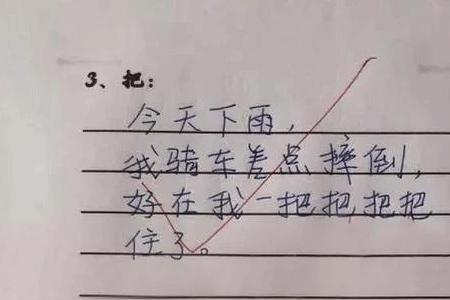 3、把:
今天下雨,
我骑车差点摔倒,
好在我一把把把把
住了。